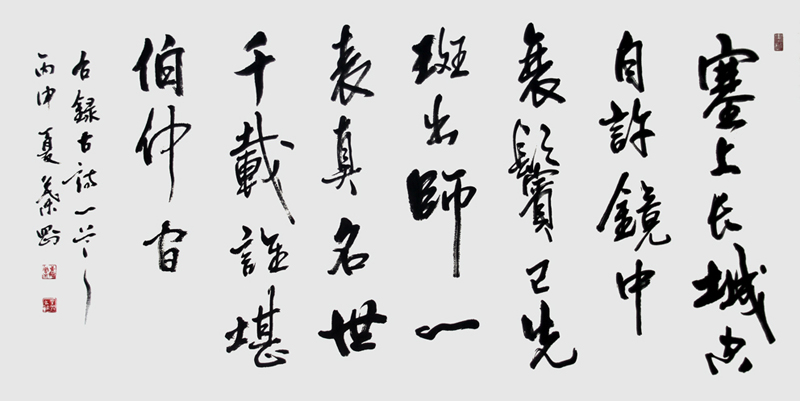 塞上长城空
自許鏡中
衰鬢已先
斑出師一
表真名世
千載誰堪
伯仲間
右録古詩一首
丙申夏